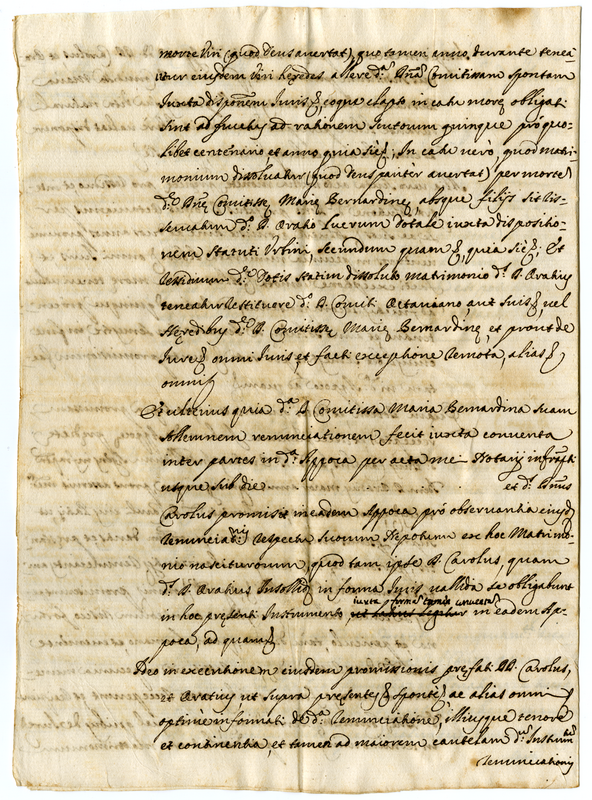 morte Viri (quod Deus avertat), quo tamen anno durante tenea-
ntur eiusdem Viri heredes alere d.ª Dnã Comitissam sponsam
Iuxta dispõnem Iuris &, eoque elapso in casu more obligati
sint ad fructus ad rationem scutorum quinque pro quo-
libet centenario, et anno quia sic &; In casu verò, quod matri-
monium dissoluatur (quod Deus pariter avertat) per mortem
d.ę Dnę Comitissę Marię Bernardinę, absque filijs sit
d.º D. Oratio Lucrum Dotale iuxta dispositio-
nem Statuti Urbini, secundum quam &, quia sic &; Et
residuum d.ę Dotis statim dissoluto matrimonio d.s D. Oratius
teneatur restituere d.º D. Comiti Octaviano, aut suis &, vel
Heredibus d.ę D. Comitissę Marię Bernardinę, et prout de
Iure &, omni Iuris, et facti exceptione remota, alias &
omni &
Et ulterius quia d.ª D. Comitissa Maria Bernardina suam
sollemnem renunciationem fecit iuxta conventa
inter partes in d.ª Apoca per acta mei Notarij infrascti
usque sub die et d.s Dnus
Carolus promisit in eadem Apoca pró observantia eiusd.
renunciat.nis respectu suorum Nepotum ex hoc Matrimo-
nio nasciturorum, quod tam ipse D. Carolus, quam
d.s D. Oratius Insolidũ in forma Iuris valida se obligabunt
in hoc presenti Instrumento iuxta formã in eadem Ap-
poca, ad quam &
Ideo in executionem eiusdem promissionis pręfati DD. Carolus,
et Oratius ut supra presentes & sponte & ac alias omni &
optimè informati de d.ª renunciatione, illiusque tenore
et continentia, et tamen ad maiorem cautelam d.m Instrum.tum
renunciationis